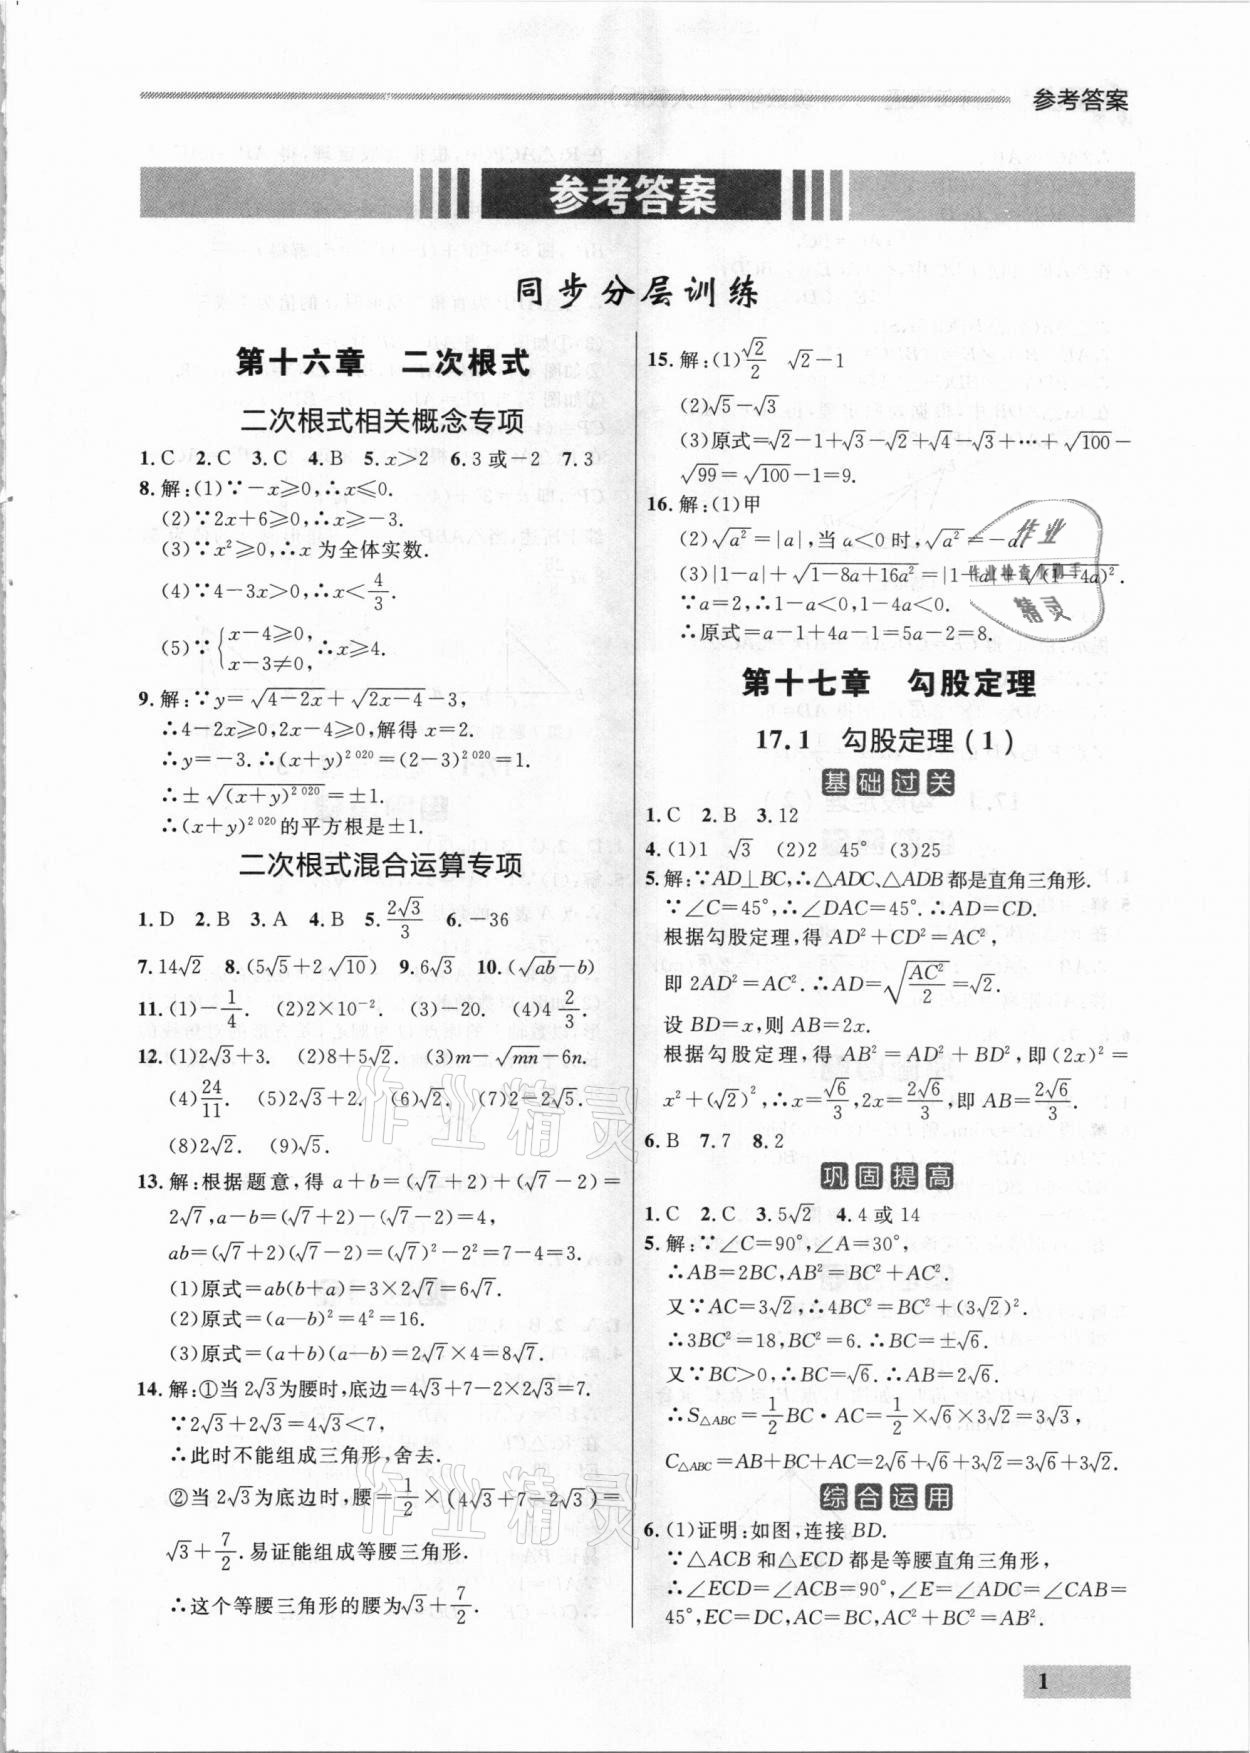 参考答案
参考答案
同步分层训练
第十六章　二次根式
二次根式相关概念专项
1.C 2.C 3.C 4.B 5.x>2 6.3或-2 7.3
8.解:(1)∵-x≥0,∴x≤0.
(2)∵2x+6≥0,∴x≥-3.
(3)∵x²≥0,∴x为全体实数.
(4)∵4-3x>0,∴x<4/3.
(5)∵{x-4≥0, x-3≠0, ∴x≥4.
9.解:∵y=√(4-2x)+√(2x-4)-3,
∴4-2x≥0,2x-4≥0,解得x=2.
∴y=-3.∴(x+y)^2 020=(2-3)^2 020=1.
∴±√((x+y)^2 020)=±1.
∴(x+y)^2 020的平方根是±1.
二次根式混合运算专项
1.D 2.B 3.A 4.B 5.2√3/3 6.-36
7.14√2 8.(5√5+2√10) 9.6√3 10.(√ab-b)
11.(1)-1/4. (2)2×10⁻². (3)-20. (4)4 2/3.
12.(1)2√3+3. (2)8+5√2. (3)m-√mn-6n.
(4)24/11. (5)2√3+2. (6)√2. (7)2-2√5.
(8)2√2. (9)√5.
13.解:根据题意,得a+b=(√7+2)+(√7-2)=
2√7,a-b=(√7+2)-(√7-2)=4,
ab=(√7+2)(√7-2)=(√7)²-2²=7-4=3.
(1)原式=ab(b+a)=3×2√7=6√7.
(2)原式=(a-b)²=4²=16.
(3)原式=(a+b)(a-b)=2√7×4=8√7.
14.解:①当2√3为腰时,底边=4√3+7-2×2√3=7.
∵2√3+2√3=4√3<7,
∴此时不能组成三角形,舍去.
②当2√3为底边时,腰=1/2×(4√3+7-2√3)=
√3+7/2.易证能组成等腰三角形.
∴这个等腰三角形的腰为√3+7/2.
15.解:(1)√2/2 √2-1
(2)√5-√3
(3)原式=√2-1+√3-√2+√4-√3+…+√100-
√99=√100-1=9.
16.解:(1)甲
(2)√a²=|a|,当a<0时,√a²=-a.
(3)|1-a|+√(1-8a+16a²)=|1-a|+√(1-4a)².
∵a=2,∴1-a<0,1-4a<0.
∴原式=a-1+4a-1=5a-2=8.
第十七章　勾股定理
17.1　勾股定理(1)
基础过关
1.C 2.B 3.12
4.(1)1 √3 (2)2 45° (3)25
5.解:∵AD⊥BC,∴△ADC、△ADB都是直角三角形.
∵∠C=45°,∴∠DAC=45°.∴AD=CD.
根据勾股定理,得AD²+CD²=AC²,
即2AD²=AC².∴AD=√(AC²/2)=√2.
设BD=x,则AB=2x.
根据勾股定理,得AB²=AD²+BD²,即(2x)²=
x²+(√2)²,∴x=√6/3,2x=2√6/3,即AB=2√6/3.
6.B 7.7 8.2
巩固提高
1.C 2.C 3.5√2 4.4或14
5.解:∵∠C=90°,∠A=30°,
∴AB=2BC,AB²=BC²+AC².
又∵AC=3√2,∴4BC²=BC²+(3√2)².
∴3BC²=18,BC²=6.∴BC=±√6.
又∵BC>0,∴BC=√6.∴AB=2√6.
∴S△ABC=1/2BC·AC=1/2×√6×3√2=3√3,
C△ABC=AB+BC+AC=2√6+√6+3√2=3√6+3√2.
综合运用
6.(1)证明:如图,连接BD.
∵△ACB和△ECD都是等腰直角三角形,
∴∠ECD=∠ACB=90°,∠E=∠ADC=∠CAB=
45°,EC=DC,AC=BC,AC²+BC²=AB².
1
作业
作业检查小助手
精灵
作业精灵
作业精灵